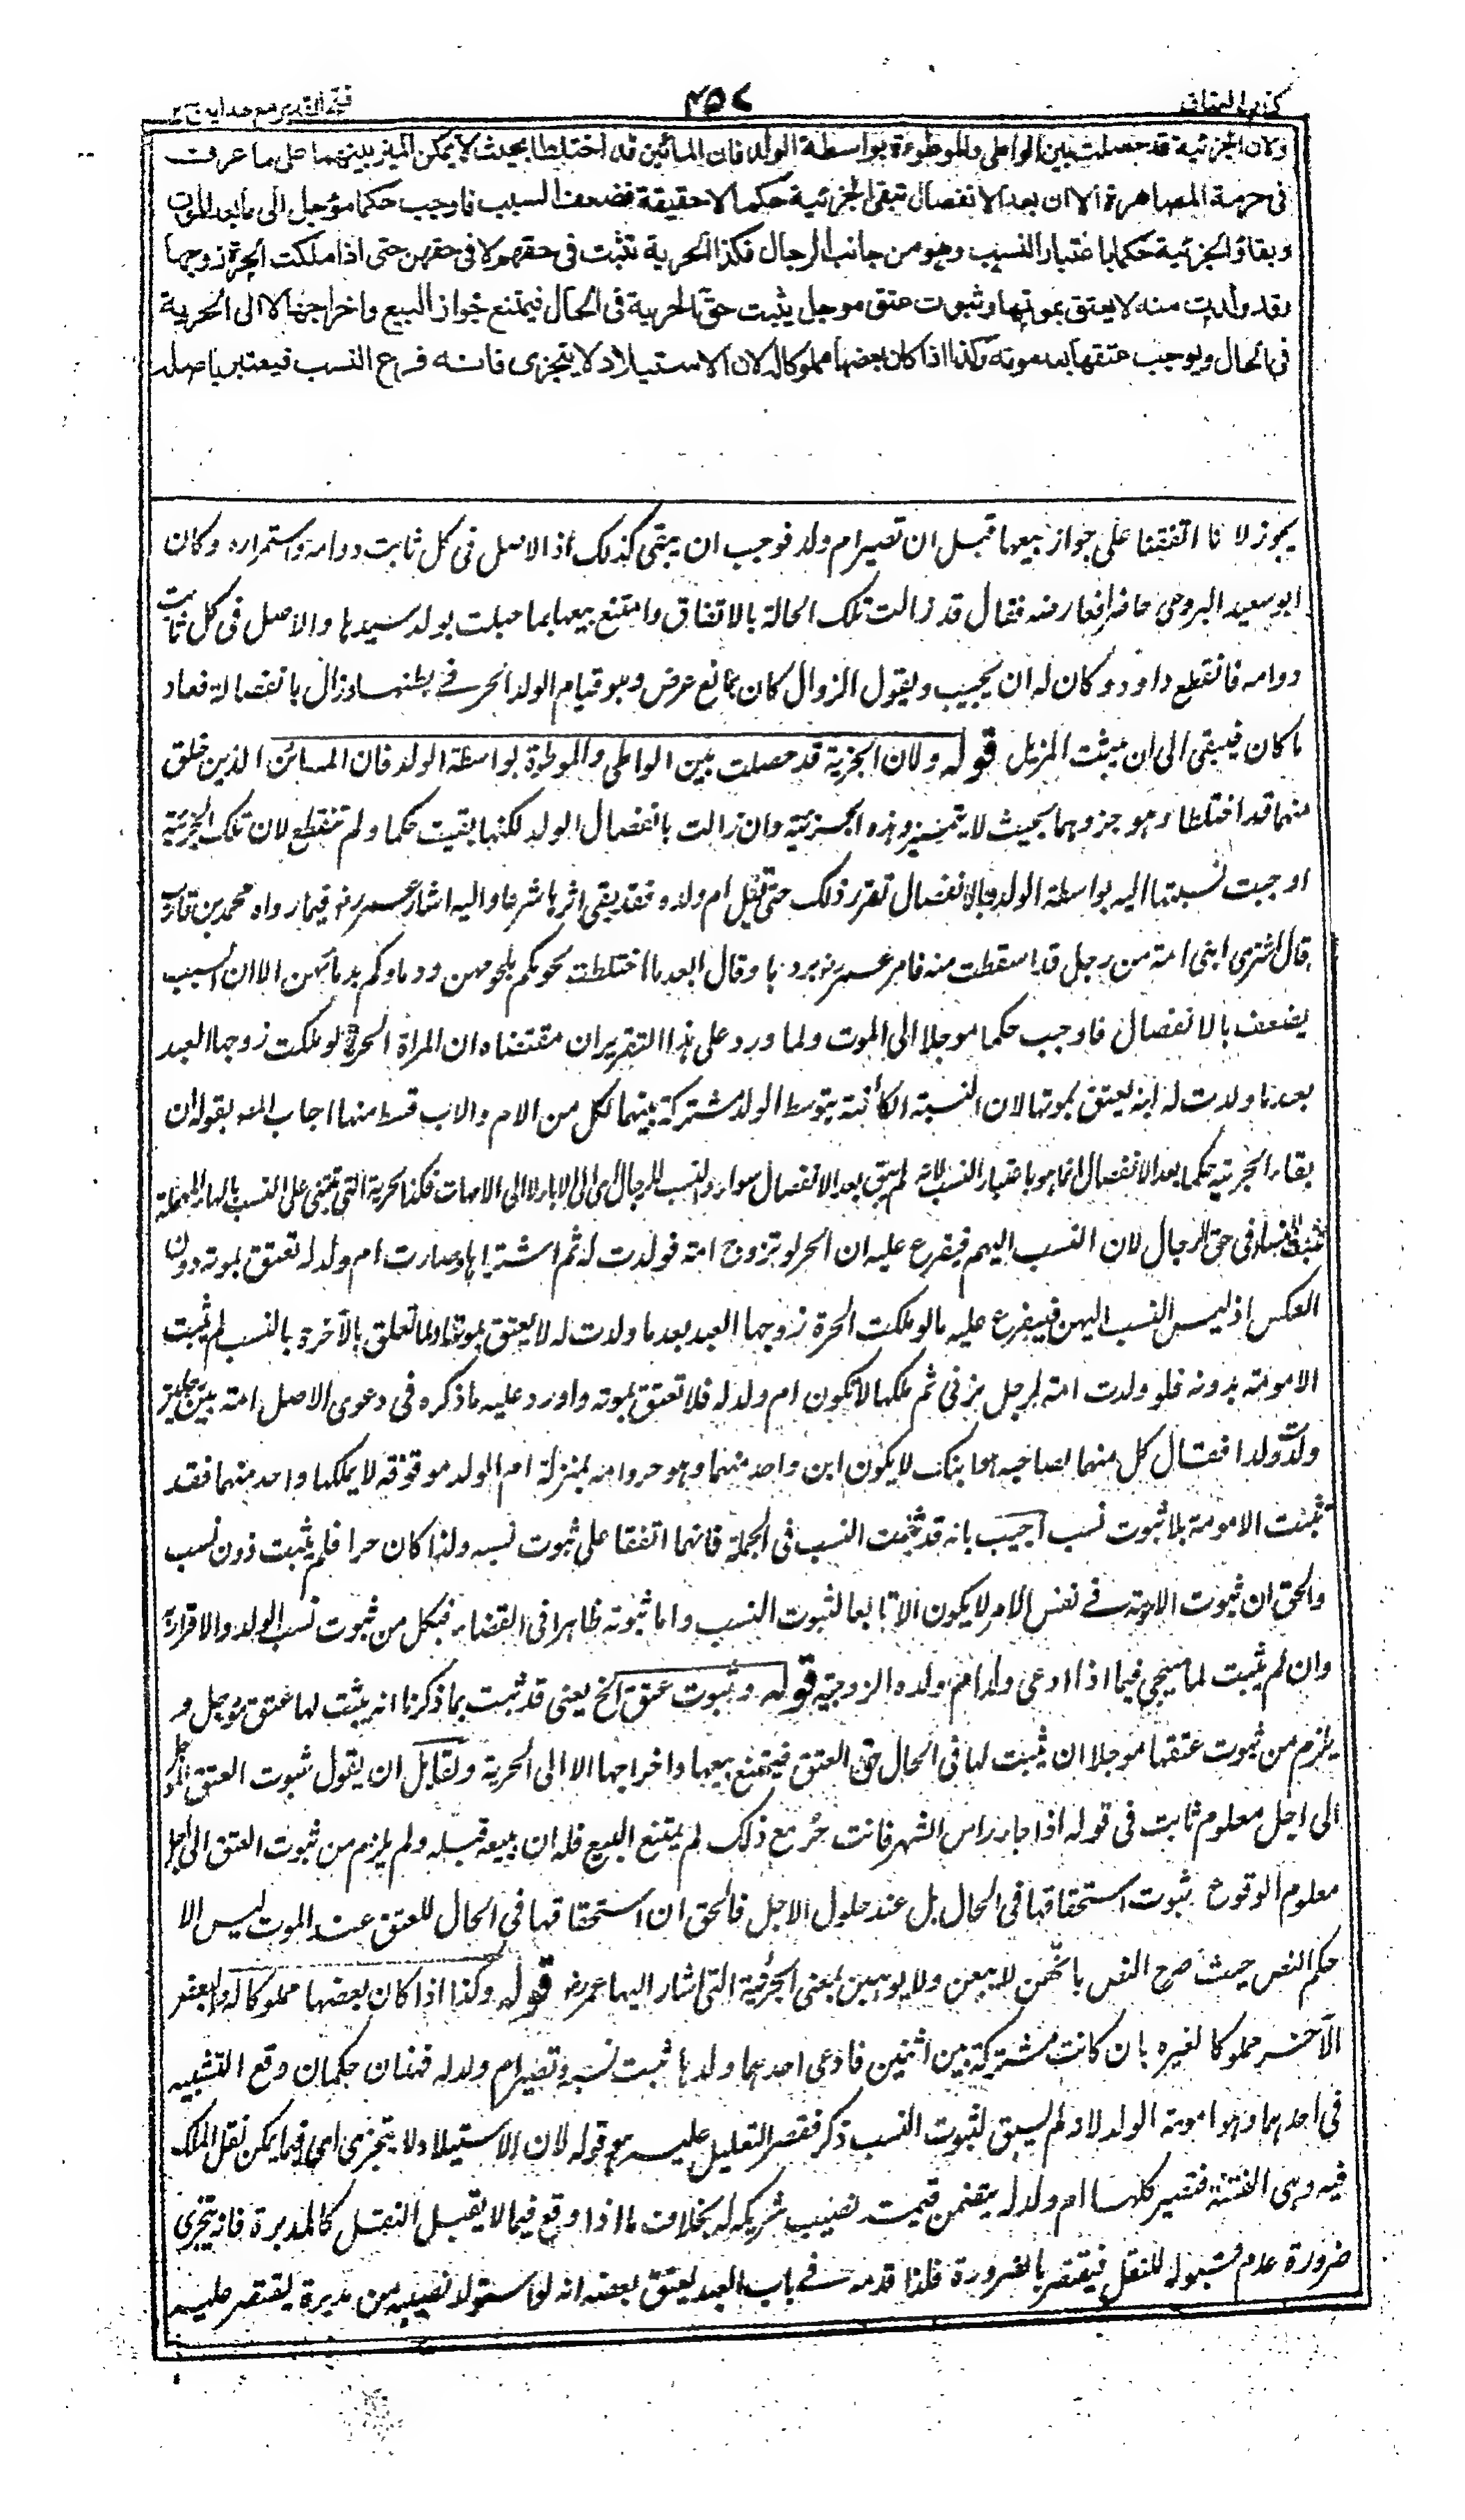 كتاب العتاق
٤٥٧
فتح القدير مع هدايه ج ٢
ولان الجزئية قد حصلت بين الواطي والموطوءة بواسطة الولد فان المائين قد اختلطا بحيث لا يمكن الميز بينهما على ما عرف
فى حرمة المصاهرة الا ان بعد الانفصال تبقى الجزئية حكما لا حقيقة فضعف السبب فاوجب حكما مؤجل الى ما بعد الموت
وبقاؤ الجزئية حكما باعتبار النسب وهو من جانب الرجال فكذا الحرية تثبت فى حقهم لا فى حقهن حتى اذا ملكت الحرة زوجها
وقد ولدت منه لا يعتق بموتها وثبوت عتق موجل يثبت حق الحرية فى الحال فيمتنع جواز البيع واخراجها لا الى الحرية
فى الحال ويوجب عتقها بعد موته وكذا اذا كان بعضها مملوكا له لان الاستيلاد لا يتجزى فانه فرع النسب فيعتبر باصله
يجوز لانا اتفقنا على جواز بيعها قبل ان تصير ام ولد فوجب ان يبقى كذلك اذ الاصل فى كل ثابت دوامه واستمراره وكان
ابو سعيد البروعى حاضرا فعارضه فقال قد زالت تلك الحالة بالاتفاق وامتنع بيعها بما حبلت بولد سيدها والاصل فى كل ثابت
دوامه فانقطع داود وكان له ان يجيب ويقول الزوال كان بمانع عرض وهو قيام الولد الحر فى بطنها وزال بانفصاله فعاد
ما كان فيبقى الى ان يثبت المزيل قوله ولان الجزية قد حصلت بين الواطى والموطوة بواسطة الولد فان المائن الذين خلق
منهما قد اختلطا وهو جزوهما بحيث لا يتميز وهذه الجزئية وان زالت بانفصال الولد لكنها بقيت حكما ولم تنقطع لان تلك الجزئية
اوجبت نسبتها اليه بواسطة الولد وبالانفصال تقرر ذلك حتى تقبل ام ولده فقد بقى اثرها شرعا واليه اشار عمر رضـ فيما رواه محمد بن قارب
قال اشترى ابى امة من رجل قد اسقطت منه فامر عمر رضـ بردها وقال ابعد ما اختلطت لحومكم بلحومهن ودماوكم بدمائهن الا ان السبب
يضعف بالانفصال فاوجب حكما موجلا الى الموت ولما ورد على هذا التقرير ان مقتضاه ان المراة الحرة لو ملكت زوجها العبد
بعد ما ولدت له انه يعتق بموتها لان النسبة الكائنة بتوسط الولد مشتركة بينهما لكل من الام والاب قسط منها اجاب المصـ بقوله ان
بقاء الجزئية حكما بعد الانفصال انما هو باعتبار النسب لانه لم يبق بعد الانفصال سواه والنسب للرجال اى الى الاباء لا الى الامهات فكذا الحرية التى تبتنى على النسب بالهاء المهملة
تثبت للنساء فى حق الرجال لان النسب اليهم فيفرع عليه ان الحر لو تزوج امة فولدت له ثم اشتراها وصارت ام ولد له تعتق بموته دون
العكس اذ ليس النسب اليهن فيفرع عليه ما لو ملكت الحرة زوجها العبد بعد ما ولدت له لا يعتق بموتها ولما تعلق بالآخرة بالنسب لم يثبت
الامومة بدونه فلو ولدت امة لرجل بزنى ثم ملكها لا تكون ام ولد له فلا تعتق بموته واورد عليه ما ذكره فى دعوى الاصل امة بين رجلين
ولدت ولدا فقال كل منهما لصاحبه هو ابنك لا يكون ابن واحد منهما وهو حر وامه بمنزلة ام الولد موقوفة لا يملكها واحد منهما فقد
تثبت الامومة بلا ثبوت نسب اجيب بانه قد ثبت النسب فى الجملة فانهما اتفقا على ثبوت نسبه ولذا كان حرا فلم يثبت دون نسب
والحق ان ثبوت الامومة فى نفس الامر لا يكون الا تابعا لثبوت النسب واما ثبوته ظاهرا فى القضاء فبكل من ثبوت نسب الولد والاقرار به
وان لم يثبت لما سيجى فيما اذا ادعى ولد ام ولده الزوجية قوله وثبوت عتق الخ يعنى قد ثبت بما ذكرنا انه يثبت لها عتق مؤجل و
يلزم من ثبوت عتقها موجلا ان يثبت لها فى الحال حق العتق فيمتنع بيعها واخراجها الا الى الحرية ولقابل ان يقول ثبوت العتق المؤجل
الى اجل معلوم ثابت فى قوله اذا جاء راس الشهر فانت حر مع ذلك لم يمتنع البيع فله ان يبيعه قبله ولم يلزم من ثبوت العتق الى اجل
معلوم الوقوع ثبوت استحقاقها فى الحال بل عند حلول الاجل فالحق ان استحقاقها فى الحال للعتق عند الموت ليس الا
حكم النص حيث صرح النص بانهن لا يبعن ولا يوهبن لمعنى الجزئية التى اشار اليها عمر رضـ قوله وكذا اذا كان بعضها مملوكا له والبعض
الآخر مملوكا لغيره بان كانت مشتركة بين اثنين فادعى احدهما ولدها ثبت نسبه وتصير ام ولد له فهنان حكمان وقع التشبيه
فى احدهما وهو امومة الولد لا ولم يسبق لثبوت النسب ذكر فقصر التعليل عليه مع قوله لان الاستيلاد لا يتجزى اى فيما يمكن نقل الملك
فيه وهى القنة فتصير كلها ام ولد له بتضمن قيمت نصيب شريكه له بخلاف ما اذا وقع فيما لا يقبل النقل كالمدبرة فانه يتجزى
ضرورة عدم قبوله للنقل فيقتصر بالضرورة فلذا قدمه فى باب العبد يعتق بعضه انه لو استولد نصيبه من مدبرة يقتصر عليه